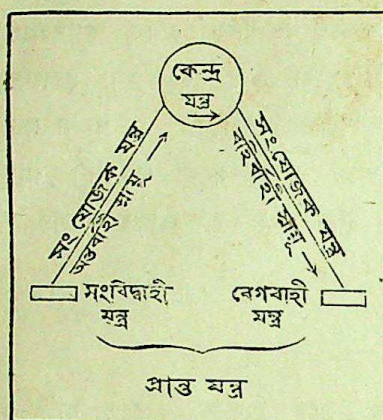 কেন্দ্র
যন্ত্র
সংযোজক যন্ত্র
অন্তর্বাহী স্নায়ু
সংযোজক যন্ত্র
বহির্বাহী স্নায়ু
সংবিদ্বাহী
যন্ত্র
বেগবাহী
যন্ত্র
প্রান্ত যন্ত্র